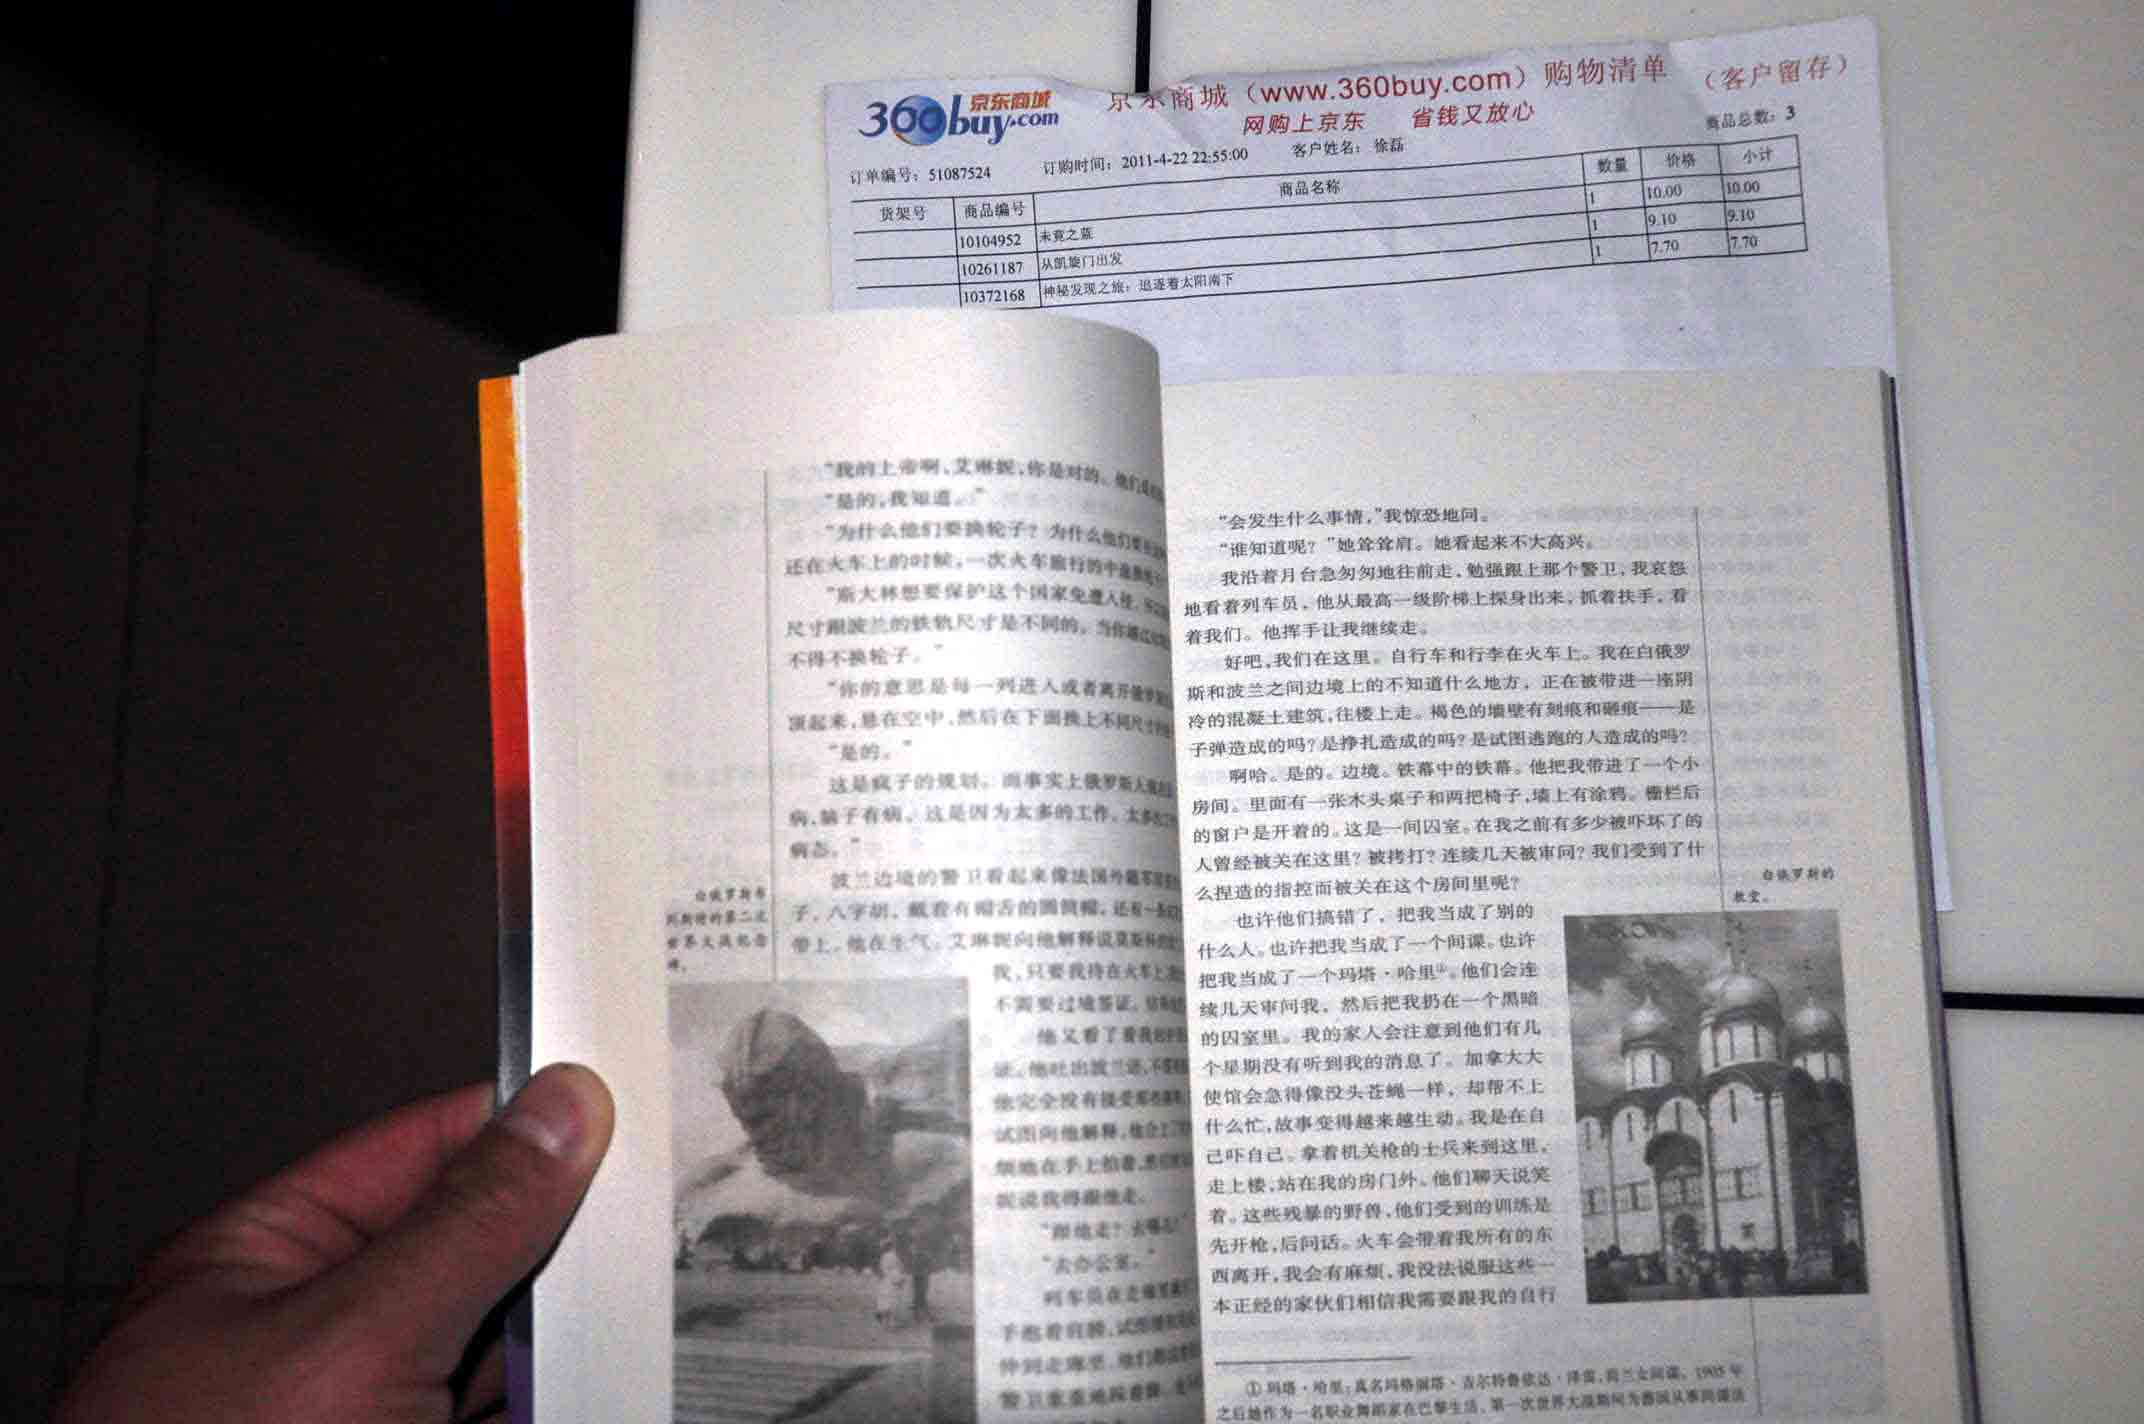 360buy.com 京东商城
京东商城（www.360buy.com）购物清单 （客户留存）
网购上京东 省钱又放心
商品总数：3
订单编号：51087524 订购时间：2011-4-22 22:55:00 客户姓名：徐磊
货架号 商品编号 商品名称 数量 价格 小计
10104952 未竟之蓝 1 10.00 10.00
10261187 从凯旋门出发 1 9.10 9.10
10372168 神秘发现之旅：追逐着太阳南下 1 7.70 7.70
“我的上帝啊，艾琳妮，你是对的。他们
“是的，我知道。”
“为什么他们要换轮子？为什么他们要
还在火车上的时候，一次火车旅行的中途
“斯大林想要保护这个国家免遭入侵，
尺寸跟波兰的铁轨尺寸是不同的。当你
不得不换轮子。”
“你的意思是每一列进入或者离开俄罗斯
顶起来，悬在空中，然后在下面换上不同尺寸的
“是的。”
这是疯子的规划。而事实上俄罗斯人
病，脑子有病。这是因为太多的工作。太多
病态。”
波兰边境的警卫看起来像法国外籍军团
子，八字胡，戴着有帽舌的圆筒帽，还有一条
带上。他在生气。艾琳妮向他解释说莫斯科的
我，只要我待在火车上
不需要过境签证。
他又看了看我的
证。他吐出波兰话，不
他完全没有接受
试图向他解释，他
烦地在手上拍着，
妮说我得跟他走。
“跟他走？去哪儿
“去办公室。”
列车员在走廊里
手抱着肩膀，试图
仲到走廊里。他们
白俄罗斯布
列斯特的第二次
世界大战纪念
碑。
“会发生什么事情，”我惊恐地问。
“谁知道呢？”她耸耸肩。她看起来不大高兴。
我沿着月台急匆匆地往前走，勉强跟上那个警卫，我哀怨
地看着列车员，他从最高一级阶梯上探身出来，抓着扶手，看
着我们。他挥手让我继续走。
好吧，我们在这里。自行车和行李在火车上。我在白俄罗
斯和波兰之间边境上的不知道什么地方，正在被带进一座阴
冷的混凝土建筑，往楼上走。褐色的墙壁有刻痕和砸痕——是
子弹造成的吗？是挣扎造成的吗？是试图逃跑的人造成的吗？
啊哈。是的。边境。铁幕中的铁幕。他把我带进了一个小
房间。里面有一张木头桌子和两把椅子，墙上有涂鸦。栅栏后
的窗户是开着的。这是一间囚室。在我之前有多少被吓坏了的
人曾经被关在这里？被拷打？连续几天被审问？我们受到了什
么捏造的指控而被关在这个房间里呢？
也许他们搞错了，把我当成了别的
什么人。也许把我当成了一个间谍。也许
把我当成了一个玛塔·哈里①。他们会连
续几天审问我，然后把我扔在一个黑暗
的囚室里。我的家人会注意到他们有几
个星期没有听到我的消息了。加拿大大
使馆会急得像没头苍蝇一样，却帮不上
什么忙，故事变得越来越生动。我是在自
己吓自己。拿着机关枪的士兵来到这里，
走上楼，站在我的房门外。他们聊天说笑
着。这些残暴的野兽，他们受到的训练是
先开枪，后问话。火车会带着我所有的东
西离开，我会有麻烦，我没法说服这些一
本正经的家伙们相信我需要跟我的自行
白俄罗斯的
教堂。
①玛塔·哈里：真名玛格丽塔·吉尔特鲁依达·泽雷，荷兰女间谍。1905年
之后她作为一名职业舞蹈家在巴黎生活，第一次世界大战期间为德国从事间谍活